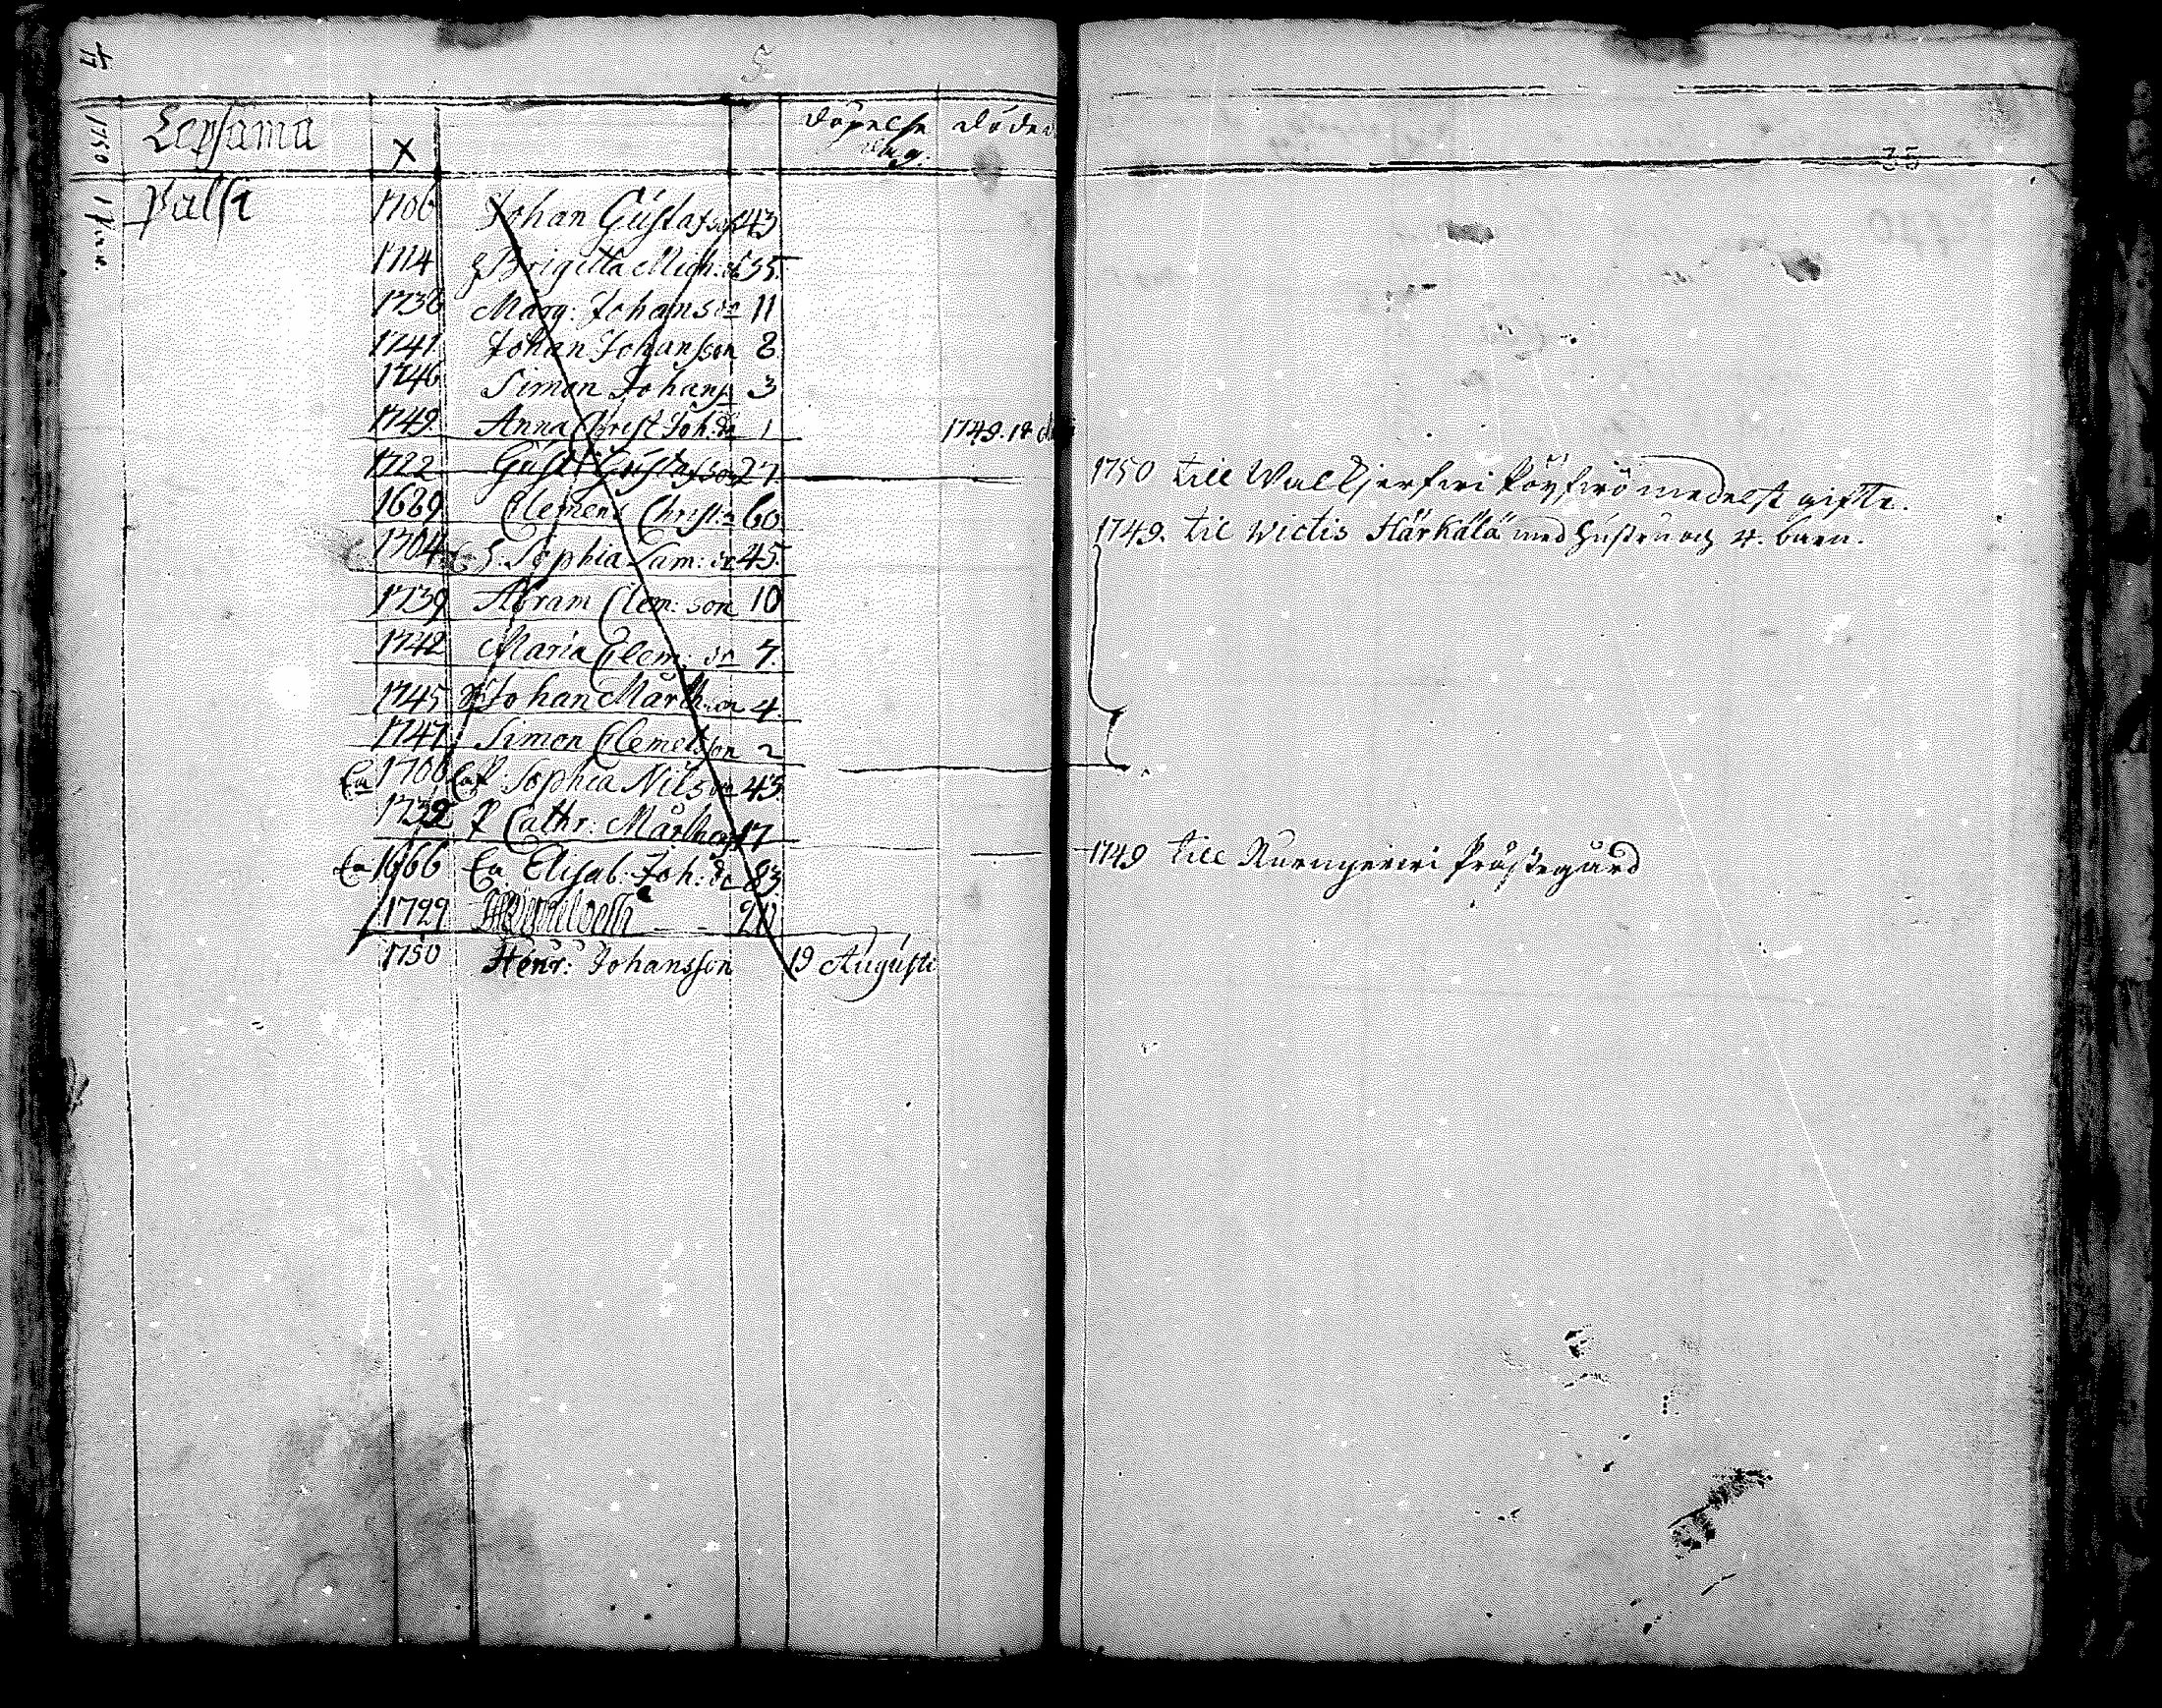 5
Lepsama X Döpelse dag: Döde
Palsi 1706 Johan Gustafson 43
1714 h Brigitta Mich: dr 35
1738 Marg: Johansdr 11
1741 Johan Johansson 8
1746 Simon Johans 3
1749 Anna Christ Joh:dr 1 1749. 18
1722 Gust: Gustafsson 27 1750 till medelst gifte.
1689 Clemens Christ: 60 1749. til Wictis Härkälä med hustru och 4. barn.
1704 h: Sophia Sam: dr 45.
1739 Abram Clem: son 10
1742 Maria Clem: dr 7.
1745 Johan Mårth:son 4
1747 Simon Clemetsson 2
Ea 1706 Ea P. Sophia Nilsdr 43.
1732 P Cathr: Mårthens 17 1749 till Nurmijerwi Prästegård
Ea 1666 Ea Elisab. Joh: dr 83
1729 20
1750 Henr: Johansson 19 Augusti
4
1750